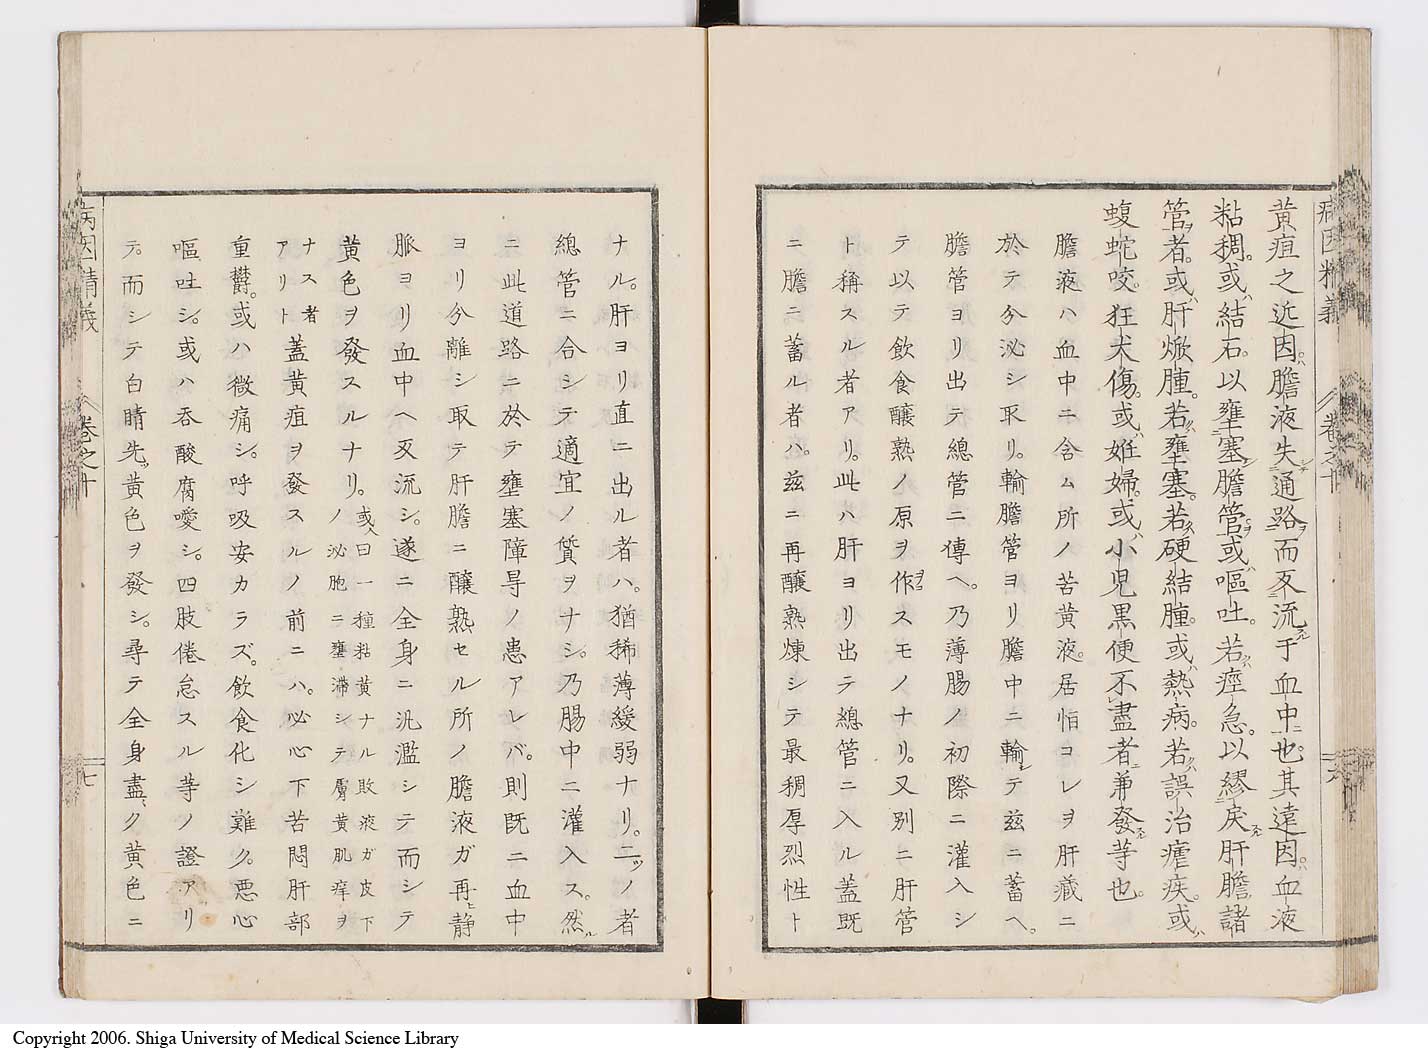 病因精義 卷之十 六
黄疸之近因。膽液失通路而冞流于血中也。其遠因。血液
粘稠。或結石。以壅塞膽管。或嘔吐。若痙急。以繆戻肝膽諸
管者。或肝焮腫。若壅塞。若硬結腫。或熱病。若誤治瘧疾。或
蝮蛇咬。狂犬傷。或姙婦。或小児黒便不盡者兼發䓁也。
膽液ハ血中ニ含ム所ノ苦黄液。居恒コレヲ肝藏ニ
於テ分泌シ取リ。輸膽管ヨリ膽中ニ輸シテ茲ニ蓄ヘ。
膽管ヨリ出テ總管ニ傳ヘ。乃薄腸ノ初際ニ灌入シ
テ以テ飲食釀熟ノ原ヲ作スモノナリ。又別ニ肝管
ト稱スル者アリ。此ハ肝ヨリ出テ總管ニ入ル蓋既
ニ膽ニ蓄ル者ハ。茲ニ再釀熟煉シテ最稠厚烈性ト
ナル。肝ヨリ直ニ出ル者ハ。猶稀薄緩弱ナリ。二ツノ者
總管ニ合シテ適宜ノ質ヲナシ。乃腸中ニ灌入ス。然ル
ニ此道路ニ於テ壅塞障㝵ノ患アレバ。則既ニ血中
ヨリ分離シ取テ肝膽ニ釀熟セル所ノ膽液ガ再ヒ静
脈ヨリ血中ヘ反流シ。遂ニ全身ニ汎濫シテ而シテ
黄色ヲ發スルナリ。或曰一種粘黄ナル敗液ガ皮下
ノ泌胞ニ壅滞シテ膚黄肌痒ヲ
ナス者
アリト
蓋黄疸ヲ發スルノ前ニハ。必心下苦悶肝部
重欝。或ハ微痛シ。呼吸安カラズ。飲食化シ難ク。悪心
嘔吐シ。或ハ呑酸腐噯シ。四肢倦怠スル䓁ノ證アリ
テ。而シテ白睛先ッ黄色ヲ發シ。尋テ全身盡ク黄色ニ
病因精義 卷之十 七
Copyright 2006. Shiga University of Medical Science Library